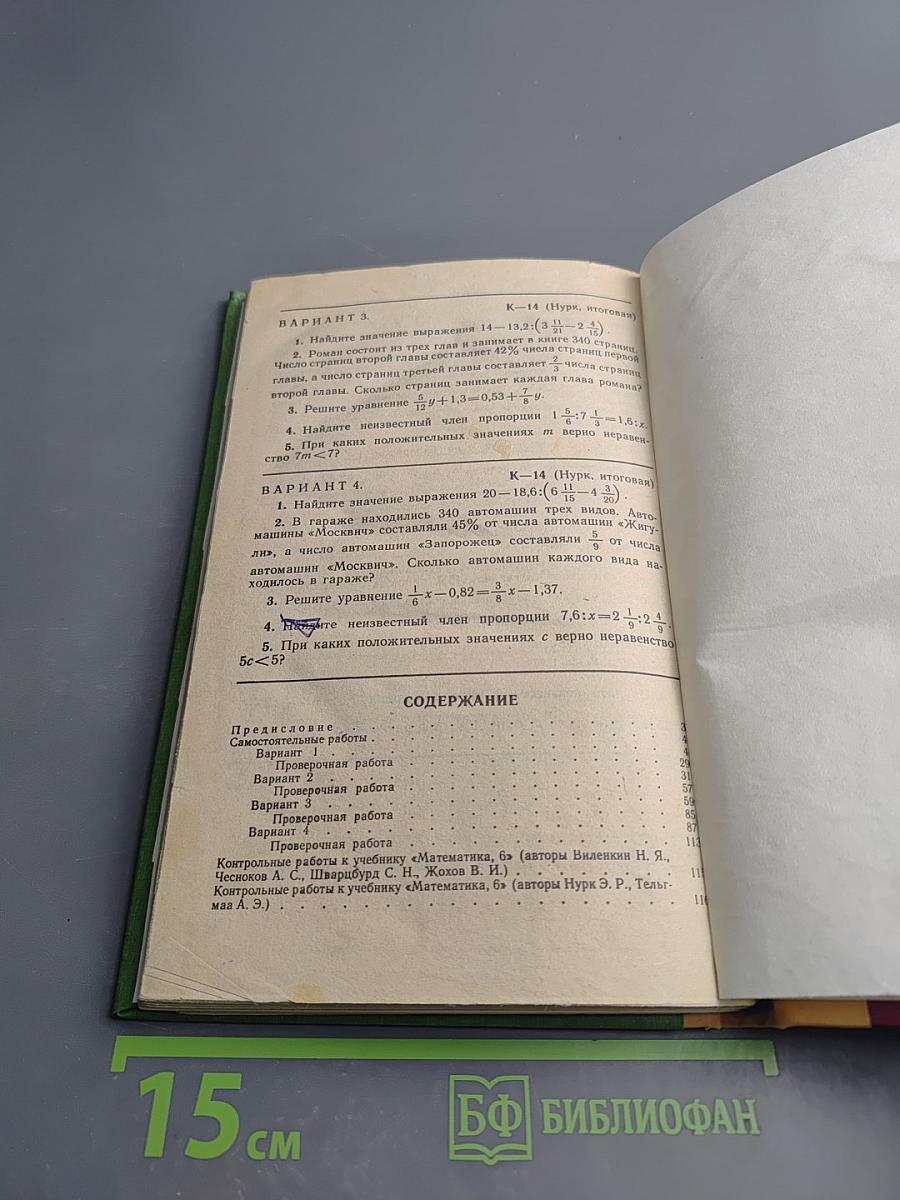 ВАРИАНТ 3. К—14 (Нурк, итоговая)
1. Найдите значение выражения 14—13,2:(3 11/21—2 4/15).
2. Роман состоит из трех глав и занимает в книге 340 страниц.
Число страниц второй главы составляет 42% числа страниц первой
главы, а число страниц третьей главы составляет 2/3 числа страниц
второй главы. Сколько страниц занимает каждая глава романа?
3. Решите уравнение 5/12 y+1,3=0,53+7/8 y.
4. Найдите неизвестный член пропорции 1 5/6:7 1/3=1,6:x.
5. При каких положительных значениях m верно неравен-
ство 7m<7?
ВАРИАНТ 4. К—14 (Нурк, итоговая)
1. Найдите значение выражения 20—18,6:(6 11/15—4 3/20).
2. В гараже находились 340 автомашин трех видов. Авто-
машины «Москвич» составляли 45% от числа автомашин «Жигу-
ли», а число автомашин «Запорожец» составляли 5/9 от числа
автомашин «Москвич». Сколько автомашин каждого вида на-
ходилось в гараже?
3. Решите уравнение 1/6 x—0,82=3/8 x—1,37.
4. Найдите неизвестный член пропорции 7,6:x=2 1/9:2 4/9.
5. При каких положительных значениях c верно неравенство
5c<5?
СОДЕРЖАНИЕ
Предисловие . . . . . . . . . . . . 3
Самостоятельные работы . . . . . . . . . . . . 4
Вариант 1 . . . . . . . . . . . . 4
Проверочная работа . . . . . . . . . . . . 29
Вариант 2 . . . . . . . . . . . . 31
Проверочная работа . . . . . . . . . . . . 57
Вариант 3 . . . . . . . . . . . . 59
Проверочная работа . . . . . . . . . . . . 85
Вариант 4 . . . . . . . . . . . . 87
Проверочная работа . . . . . . . . . . . . 113
Контрольные работы к учебнику «Математика, 6» (авторы Виленкин Н. Я.,
Чесноков А. С., Шварцбурд С. Н., Жохов В. И.) . . . . . . . .
Контрольные работы к учебнику «Математика, 6» (авторы Нурк Э. Р., Тельг-
маа А. Э.) . . . . . . . . . . . .
15 см
БФ БИБЛИОФАН